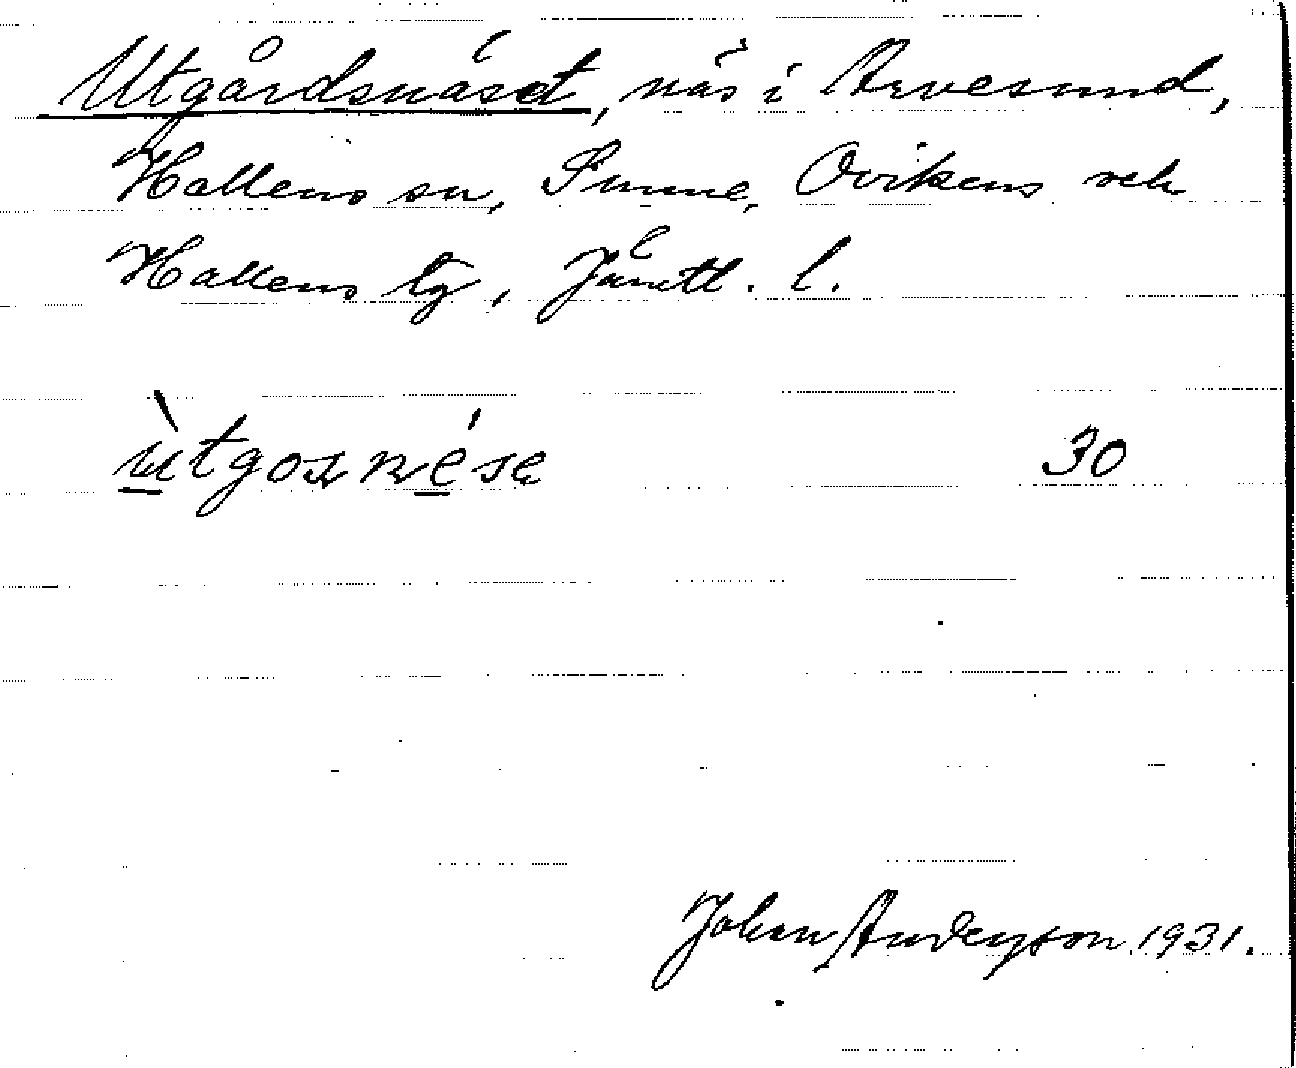 Utgårdsnäset, näs i Arvesund,
Hallens sn, Sunne, Ovikens och
Hallens tg, Jämtl. l.
ùtgoṣṇése 30
Johan Anderson 1931.